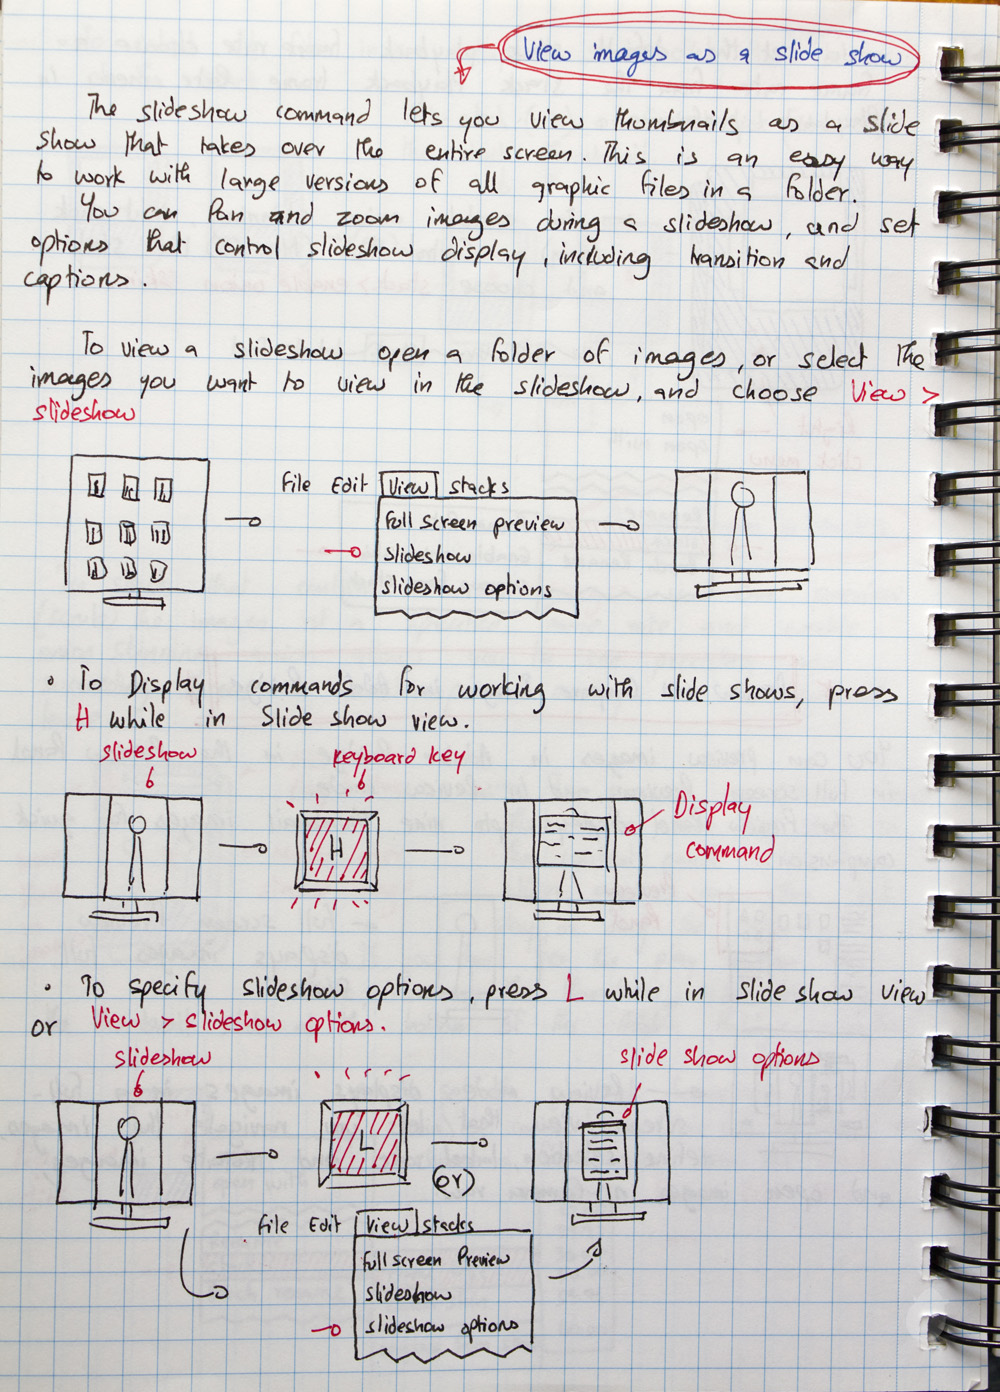 View images as a slide show
The slideshow command lets you view thumbnails as a slide
show that takes over the entire screen. This is an easy way
to work with large versions of all graphic files in a folder.
You can Pan and zoom images during a slideshow, and set
options that control slideshow display, including transition and
captions.
To view a slideshow open a folder of images, or select the
images you want to view in the slideshow, and choose View >
slideshow
File Edit View Stacks
full screen preview
slideshow
slideshow options
• To Display commands for working with slide shows, press
H while in Slide show view.
slideshow
keyboard key
H
Display
command
• To specify slideshow options, press L while in slide show view
or View > slideshow options.
slideshow
slide show options
L
(or)
File Edit View stacks
Full screen Preview
slideshow
slideshow options